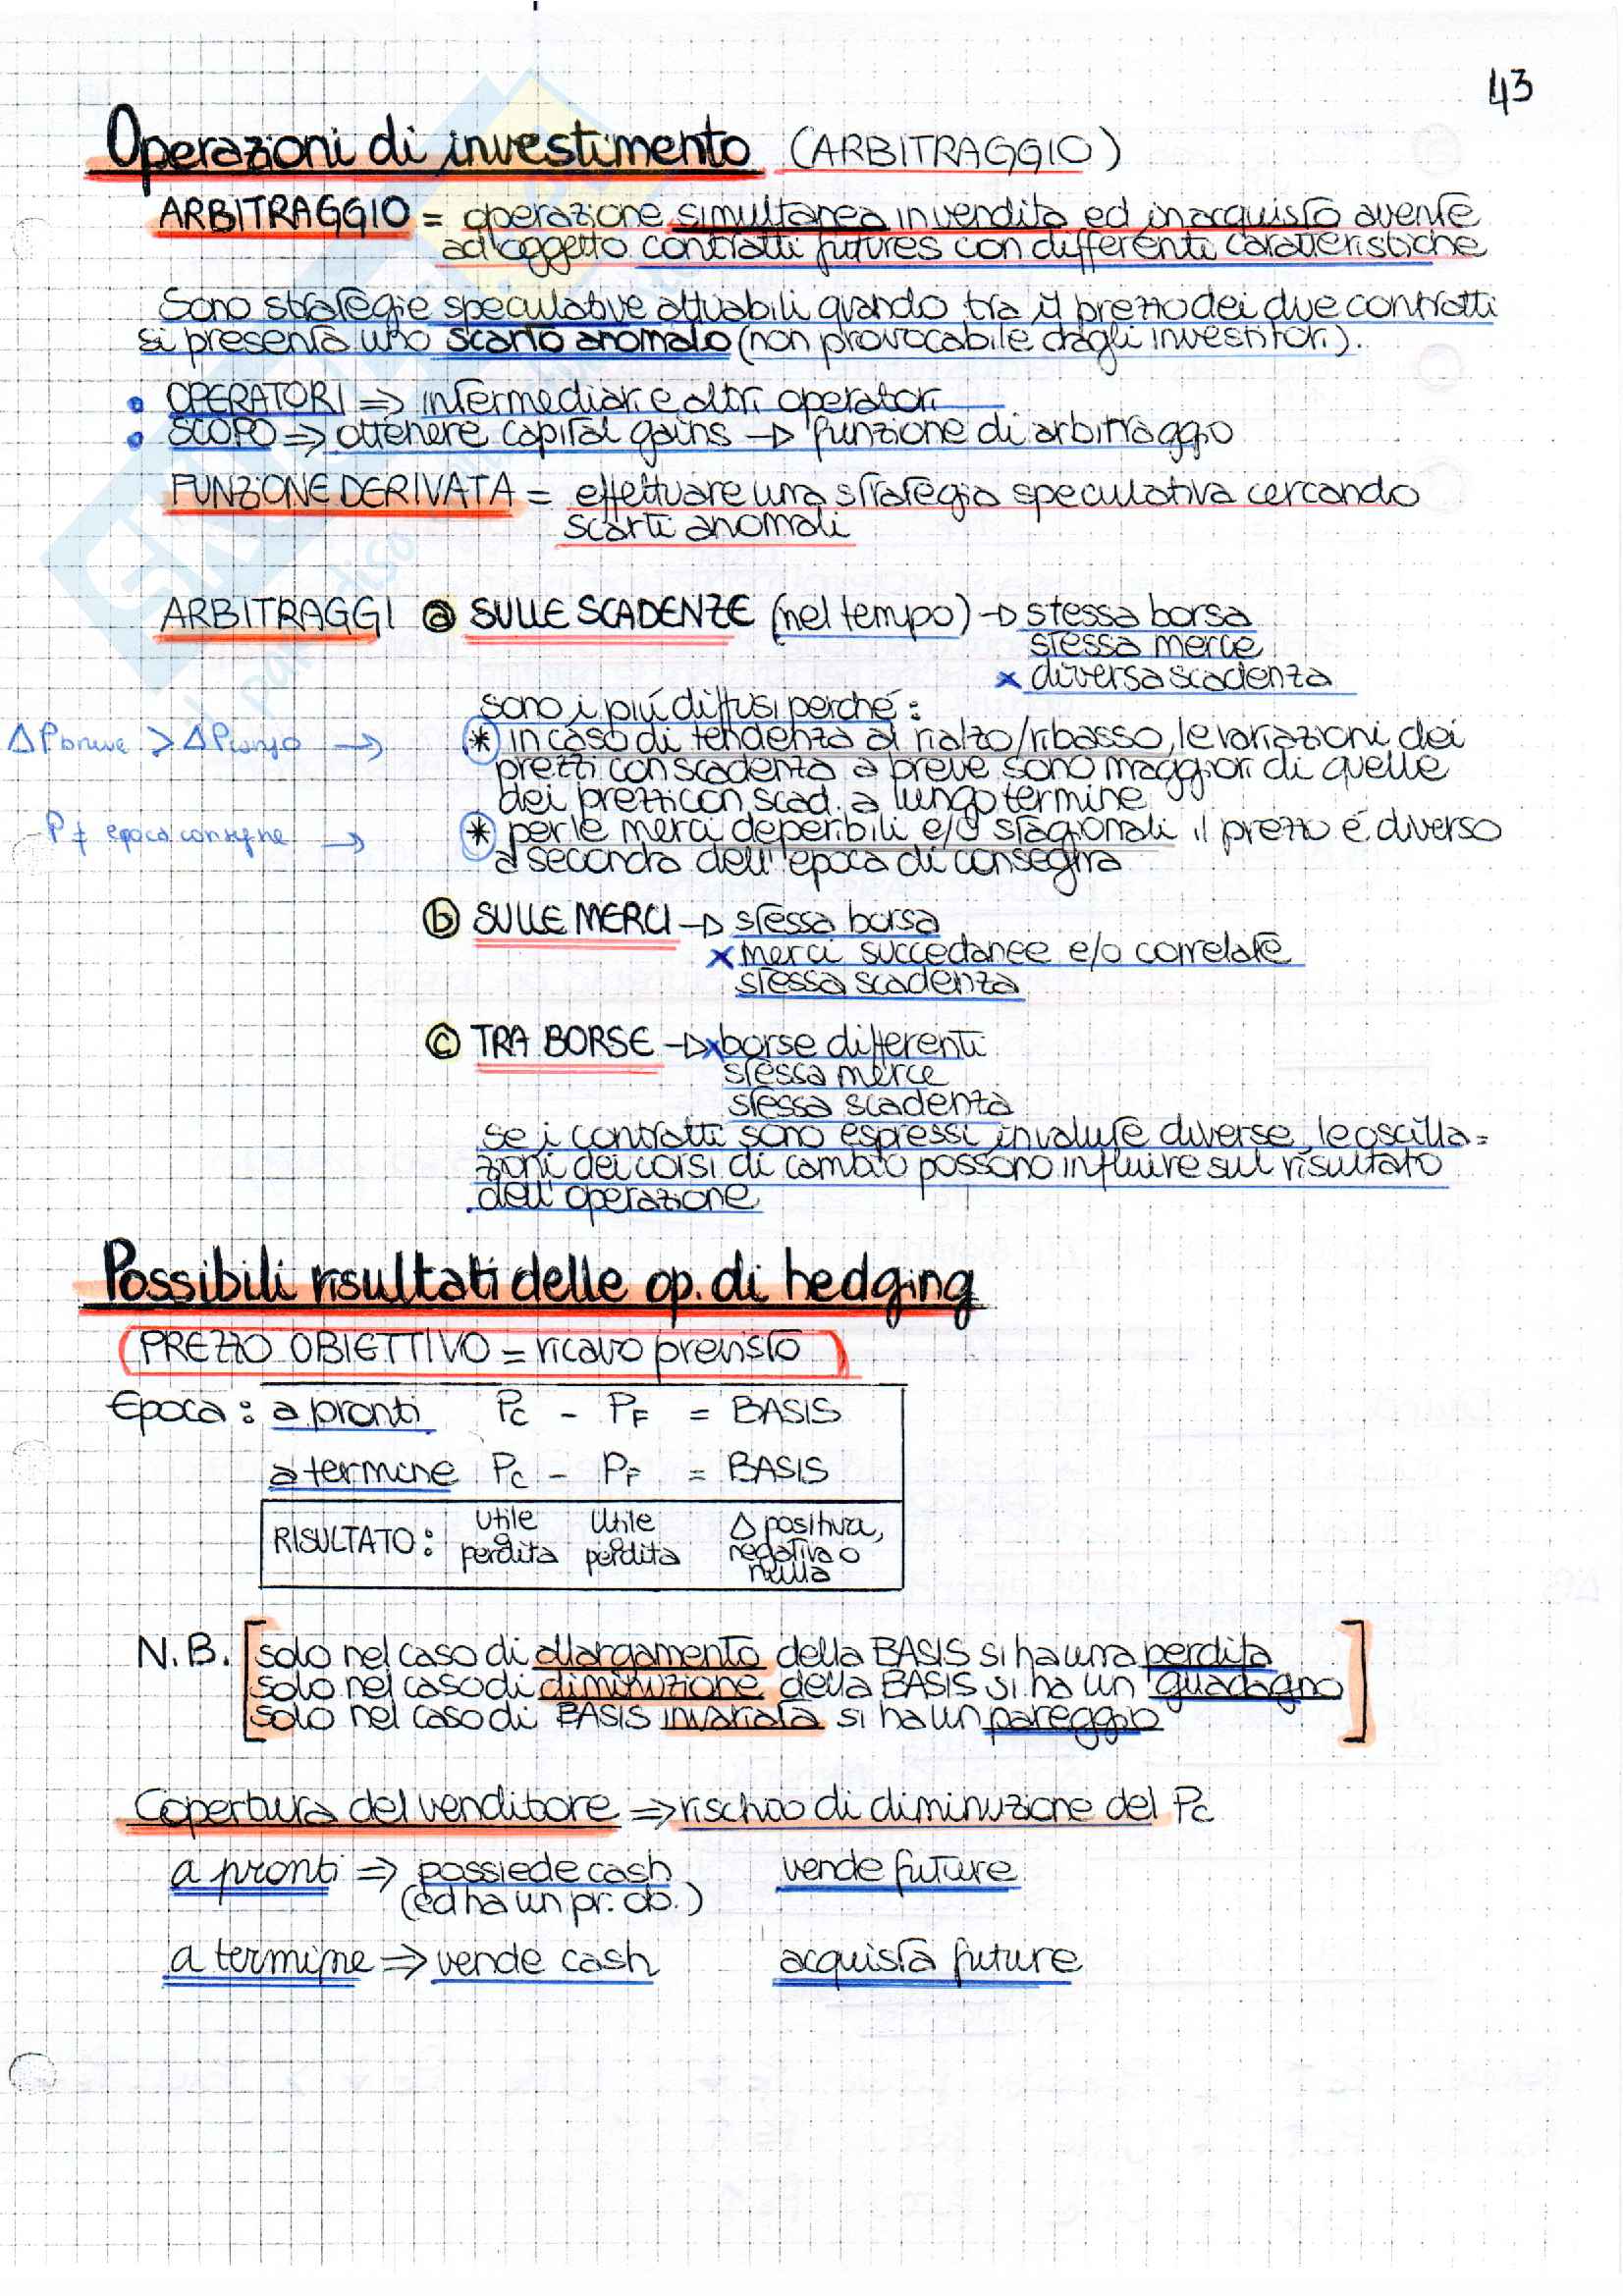 43
Operazioni di investimento (ARBITRAGGIO)
ARBITRAGGIO = operazione simultanea in vendita ed in acquisto avente
ad oggetto contratti futures con differenti caratteristiche
Sono strategie speculative attuabili quando tra il prezzo dei due contratti
si presenta uno scarto anomalo (non provocabile dagli investitori).
• OPERATORI => intermediari e altri operatori
• SCOPO => ottenere capital gains -> funzione di arbitraggio
FUNZIONE DERIVATA = effettuare una strategia speculativa cercando
scarti anomali
ARBITRAGGI ⓐ SULLE SCADENZE (nel tempo) -> stessa borsa
stessa merce
x diversa scadenza
sono i più diffusi perché:
ΔP breve > ΔP lungo -> * in caso di tendenza al rialzo/ribasso, le variazioni dei
prezzi con scadenza a breve sono maggiori di quelle
dei prezzi con scad. a lungo termine
P ≠ epoca consegne -> * per le merci deperibili e/o stagionali il prezzo é diverso
a seconda dell'epoca di consegna
ⓑ SULLE MERCI -> stessa borsa
x merci succedanee e/o correlate
stessa scadenza
ⓒ TRA BORSE -> x borse differenti
stessa merce
stessa scadenza
se i contratti sono espressi in valute diverse, le oscilla=
zioni dei corsi di cambio possono influire sul risultato
dell'operazione
Possibili risultati delle op. di hedging
(PREZZO OBIETTIVO = ricavo previsto)
Epoca: a pronti Pc - PF = BASIS
a termine Pc - PF = BASIS
RISULTATO: utile o perdita utile o perdita Δ positiva, negativa o nulla
N.B. [solo nel caso di allargamento della BASIS si ha una perdita
solo nel caso di diminuzione della BASIS si ha un guadagno
solo nel caso di BASIS invariata si ha un pareggio]
Copertura del venditore => rischio di diminuzione del Pc
a pronti => possiede cash vende future
(ed ha un pr. ob.)
a termine => vende cash acquista future